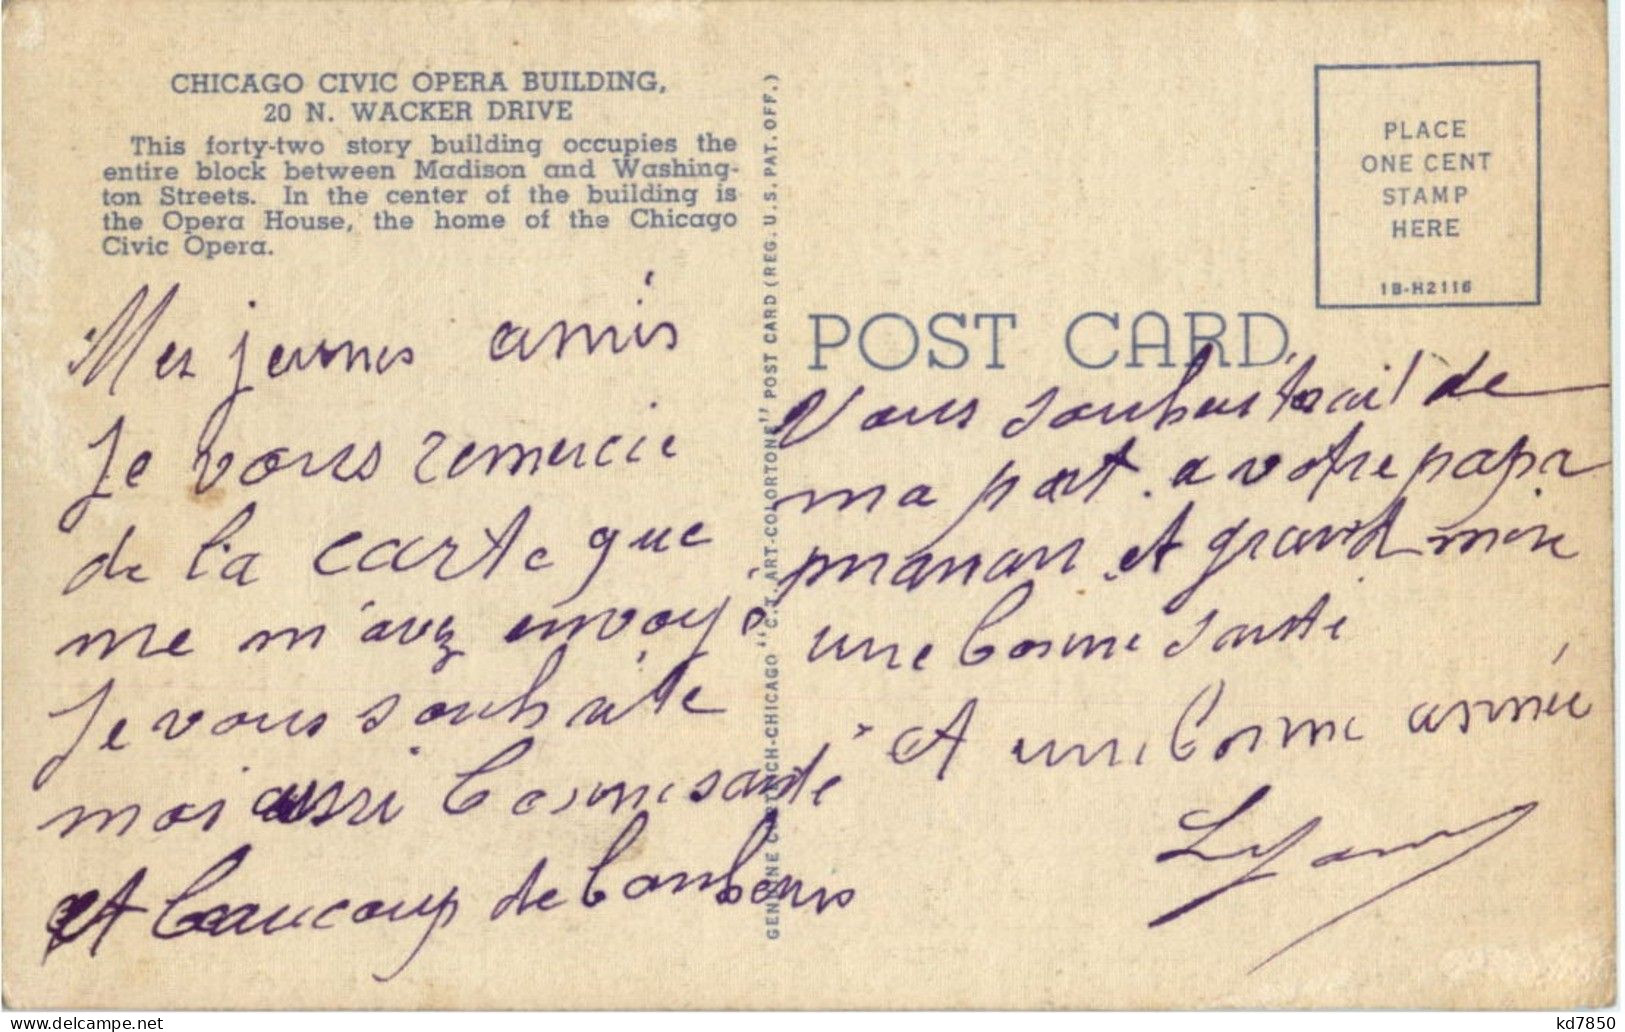 CHICAGO CIVIC OPERA BUILDING,
20 N. WACKER DRIVE
This forty-two story building occupies the
entire block between Madison and Washing-
ton Streets. In the center of the building is
the Opera House, the home of the Chicago
Civic Opera.
Mes jeunes amis
Je vous remercie
de la carte que
me m'avez envoyé
Je vous souhaite
moi aussi bonne santé
et beaucoup de bonbons
GENUINE CURTEICH-CHICAGO "C.T. ART-COLORTONE" POST CARD (REG. U.S. PAT. OFF.)
PLACE
ONE CENT
STAMP
HERE
1B-H2116
POST CARD
Vous de
ma part. a votre papa
maman et grand mère
une bonne santé
Et une bonne année
kd7850